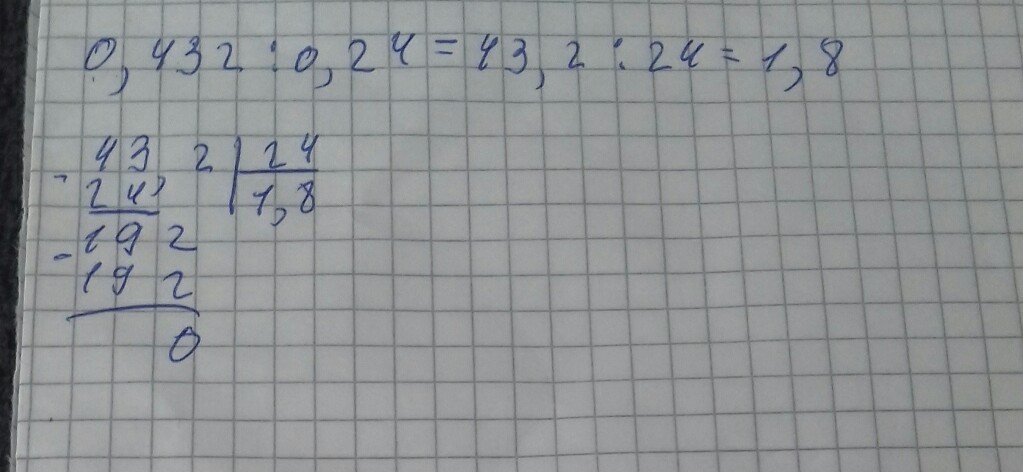 0,432 : 0,24 = 43,2 : 24 = 1,8
- 43,2 | 24
24 | 1,8
- 192
192
0